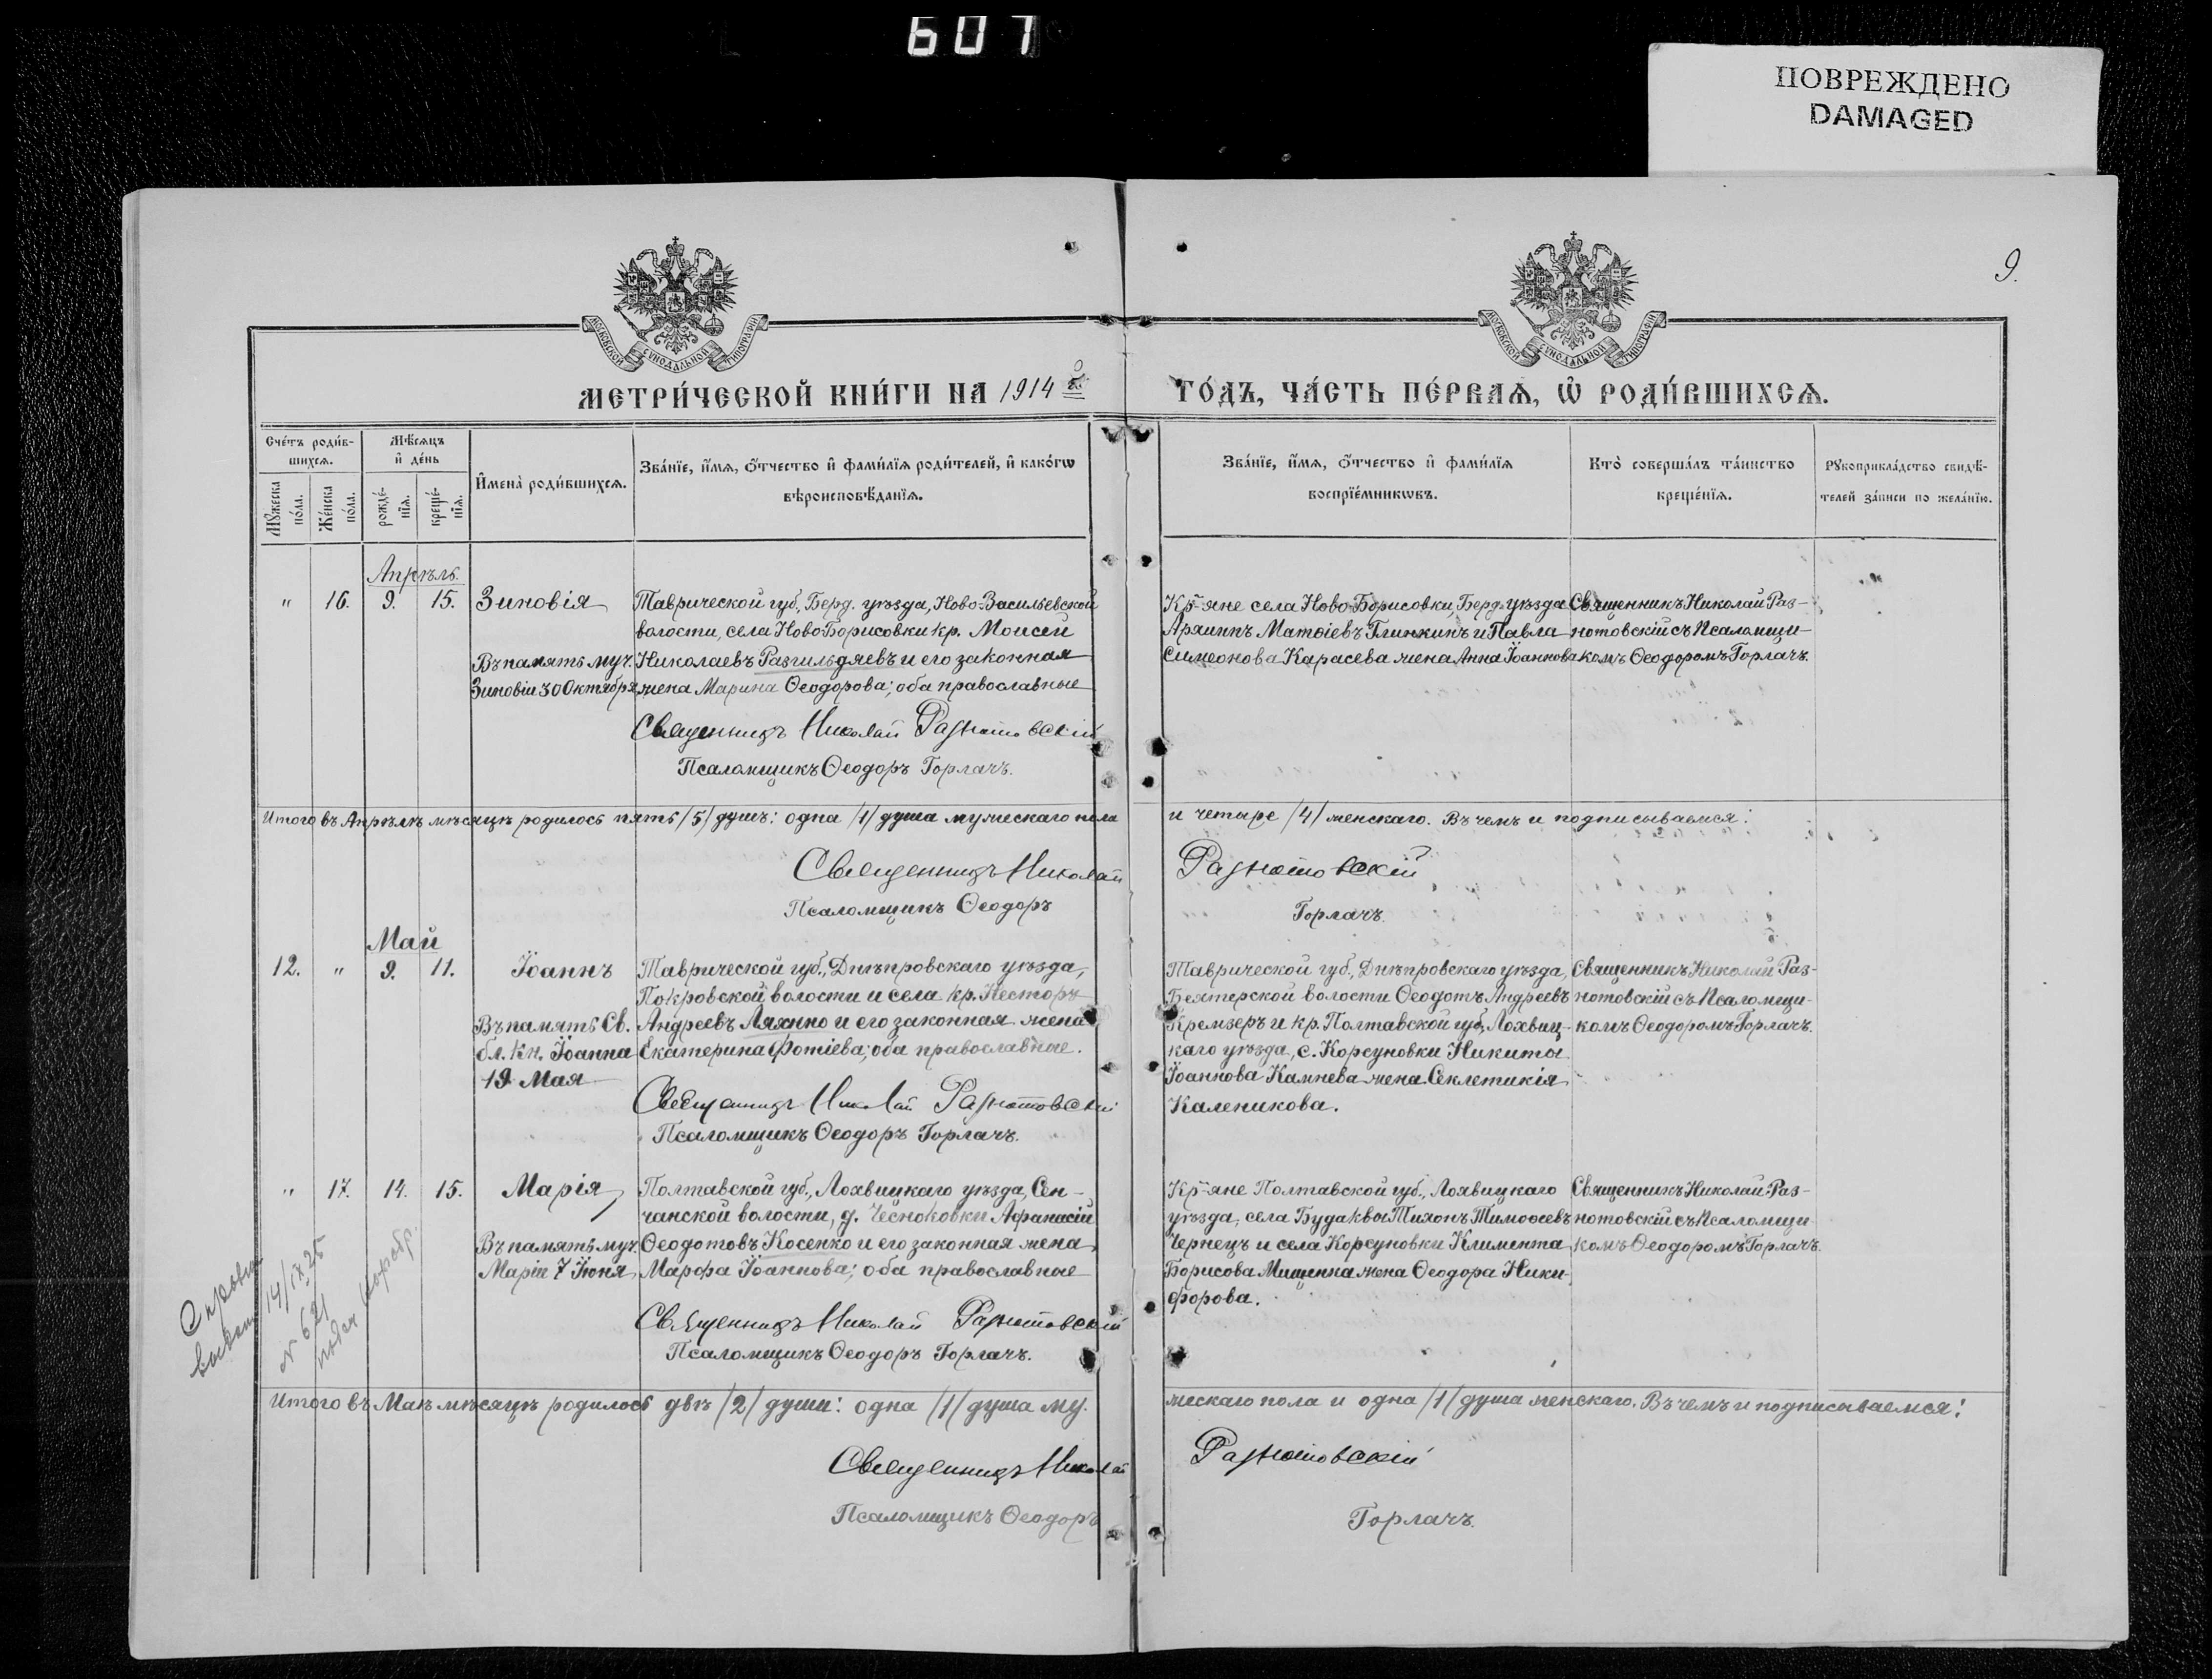 607
ПОВРЕЖДЕНО
DAMAGED
9.
МОСКОВСКОЙ СѴНОДАЛЬНОЙ ТИПОГРАФІИ
МОСКОВСКОЙ СѴНОДАЛЬНОЙ ТИПОГРАФІИ
МЕТРИ́ЧЕСКОЙ КНИ́ГИ НА 1914 й
ГО́ДЪ, ЧА́СТЬ ПЕ́РВАѦ, Ѡ҆ РОДИ́ВШИХСѦ.
Сче́тъ роди́в-
шихсѧ.
Мꙋ́жеска по́ла.
Же́нска по́ла.
Мѣ́сѧцъ
и҆ де́нь
рожде́-
нїѧ.
креще́-
нїѧ.
И҆мена̀ роди́вшихсѧ.
Зва́нїе, и҆́мѧ, ѻ҆́тчество и҆ фами́лїѧ роди́телей, и҆ како́гѡ
вѣроисповѣ́данїѧ.
Зва́нїе, и҆́мѧ, ѻ҆́тчество и҆ фами́лїѧ
воспрїе́мникѡвъ.
Кто̀ соверша́лъ та́инство
креще́нїѧ.
Рꙋкоприкла́дство свидѣ́-
телей за́писи по жела́нїю.
Апрѣль.
" 16. 9. 15. Зиновія
Въ память муч.
Зиновіи 30 Октября
Таврической губ., Берд. уѣзда, Ново-Васильевской
волости, села Ново-Борисовки кр. Моисей
Николаевъ Разгильдяевъ и его законная
жена Марина Ѳеодорова; оба православные
Священникъ Николай Разнотовскій
Псаломщикъ Ѳеодоръ Горлачъ.
Кр-яне села Ново-Борисовки, Берд. уѣзда
Архиппъ Матѳіевъ Глинкинъ и Павла
Симеонова Карасева жена Анна Іоаннова
Священникъ Николай Раз-
нотовскій съ Псаломщи-
комъ Ѳеодоромъ Горлачъ.
Итого въ Апрѣлѣ мѣсяцѣ родилось пять /5/ душъ: одна /1/ душа мужескаго пола
и четыре /4/ женскаго. Въ чемъ и подписываемся:
Священникъ Николай Разнотовскій
Псаломщикъ Ѳеодоръ Горлачъ.
Май
12. " 9. 11. Іоаннъ
Въ память Св.
бл. кн. Іоанна
19 Мая
Таврической губ., Днѣпровскаго уѣзда,
Покровской волости и села кр. Несторъ
Андреевъ Ляхно и его законная жена
Екатерина Фотіева; оба православные.
Священникъ Николай Разнотовскій
Псаломщикъ Ѳеодоръ Горлачъ.
Таврической губ., Днѣпровскаго уѣзда,
Бехтерской волости Ѳеодотъ Андреевъ
Кремзеръ и кр. Полтавской губ., Лохвиц-
каго уѣзда, с. Корсуновки Никиты
Іоаннова Камнева жена Секлетикія
Каленикова.
Священникъ Николай Раз-
нотовскій съ Псаломщи-
комъ Ѳеодоромъ Горлачъ.
" 17. 14. 15. Марія
Въ память муч.
Маріи 7 Іюня
Полтавской губ., Лохвицкаго уѣзда, Сен-
чанской волости, д. Чесноковки Аѳанасій
Ѳеодотовъ Косенко и его законная жена
Марѳа Іоаннова; оба православные
Священникъ Николай Разнотовскій
Псаломщикъ Ѳеодоръ Горлачъ.
Кр-яне Полтавской губ., Лохвицкаго
уѣзда, села Будаквы Тихонъ Тимоѳеевъ
Чернецъ и села Корсуновки Климента
Борисова Мищенка жена Ѳеодора Ники-
форова.
Священникъ Николай Раз-
нотовскій съ Псаломщи-
комъ Ѳеодоромъ Горлачъ.
14/IX 25
№ 621
Итого въ Маѣ мѣсяцѣ родилось двѣ /2/ души: одна /1/ душа му-
жескаго пола и одна /1/ душа женскаго. Въ чемъ и подписываемся:
Священникъ Николай Разнотовскій
Псаломщикъ Ѳеодоръ Горлачъ.